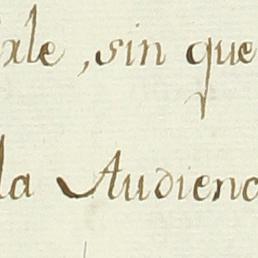 xle, sin que
la Audienc